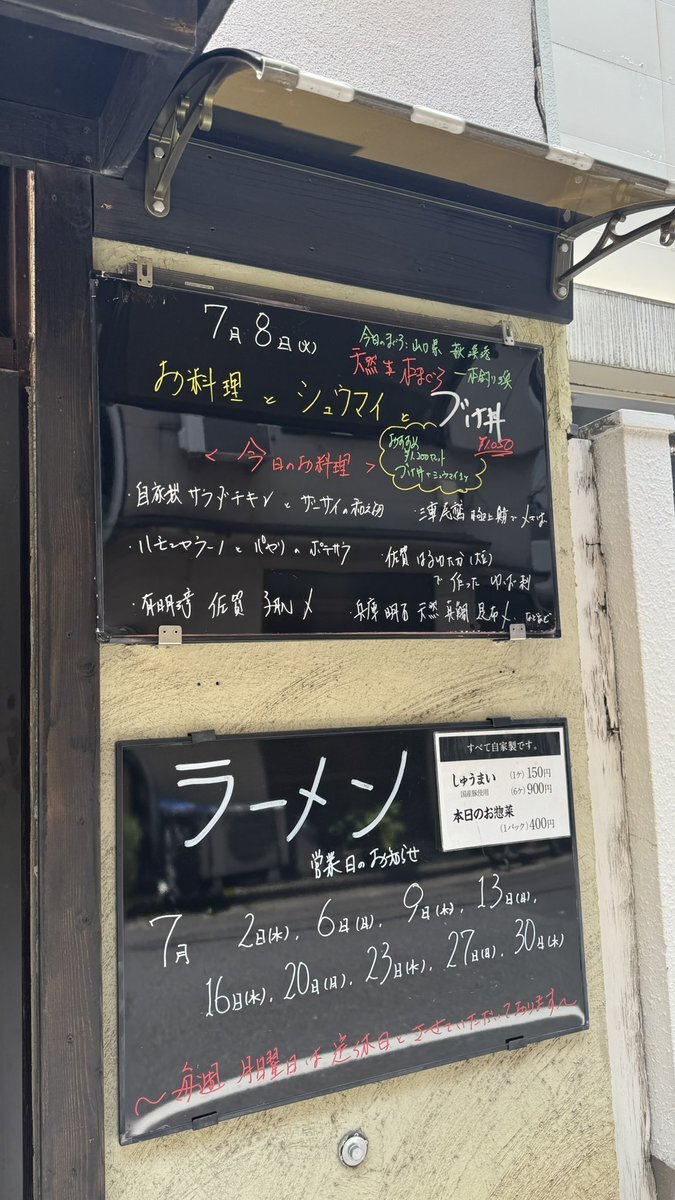 7月8日(火)
今日のまぐろ:山口県 萩
天然 本まぐろ 一本釣り
お料理 と シュウマイ と づけ丼
¥1,050
おすすめ
¥1,200セット
づけ丼+シュウマイ
< 今日のお料理 >
・自家製 サラダチキン と ザーサイの和え物
・ハモンセラーノ と パセリ の ポテサラ
・佐賀 (大豆)
で 作った
・有明湾 佐賀
・兵庫 明石 天然 真鯛 昆布〆 などなど
ラーメン
営業日のお知らせ
7月 2日(水)、6日(日)、9日(水)、13日(日)、
16日(水)、20日(日)、23日(水)、27日(日)、30日(水)
〜毎週 月曜日は 定休日と させていただいております〜
すべて自家製です。
しゅうまい (1ケ) 150円
国産豚使用 (6ケ) 900円
本日のお惣菜
(1パック) 400円